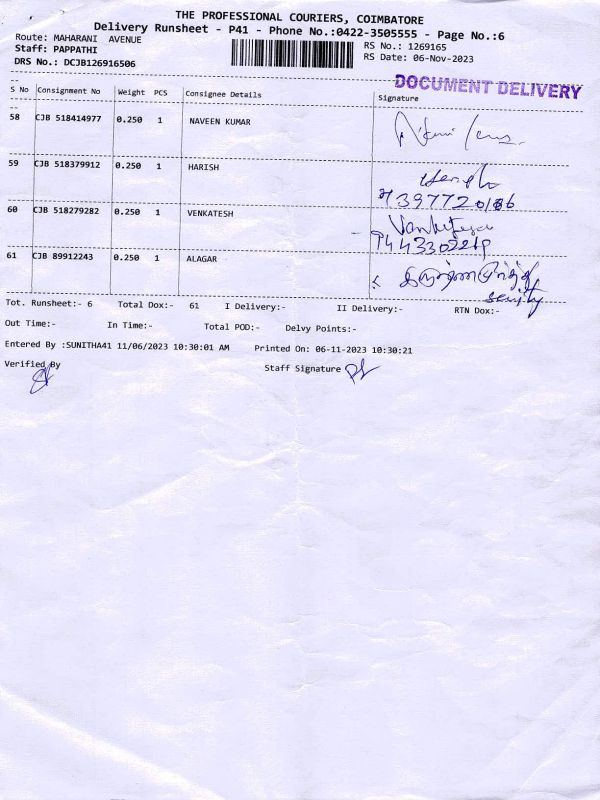 THE PROFESSIONAL COURIERS, COIMBATORE
Delivery Runsheet - P41 - Phone No.:0422-3505555 - Page No.:6
Route: MAHARANI AVENUE RS No.: 1269165
Staff: PAPPATHI RS Date: 06-Nov-2023
DRS No.: DCJB126916506
DOCUMENT DELIVERY
S No Consignment No Weight PCS Consignee Details Signature
58 CJB 518414977 0.250 1 NAVEEN KUMAR
59 CJB 518379912 0.250 1 HARISH
60 CJB 518279282 0.250 1 VENKATESH
61 CJB 89912243 0.250 1 ALAGAR
Tot. Runsheet:- 6 Total Dox:- 61 I Delivery:- II Delivery:- RTN Dox:-
Out Time:- In Time:- Total POD:- Delvy Points:-
Entered By :SUNITHA41 11/06/2023 10:30:01 AM Printed On: 06-11-2023 10:30:21
Verified By Staff Signature